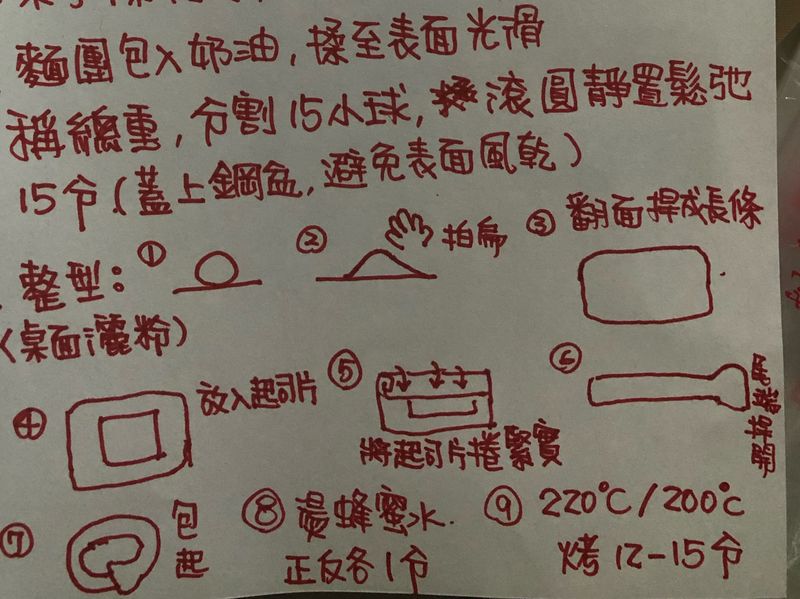 麵團包入奶油，揉至表面光滑
稱總重，分割15小球，滾圓靜置鬆弛
15分（蓋上鋼盆，避免表面風乾）
整型：① ② 拍扁 ③ 翻面捍成長條
（桌面灑粉）
④ 放入起司片
⑤ 將起司片捲緊實
⑥ 尾端捍開
⑦ 包起
⑧ 燙蜂蜜水．
正反各1分
⑨ 220°C/200°C
烤12-15分